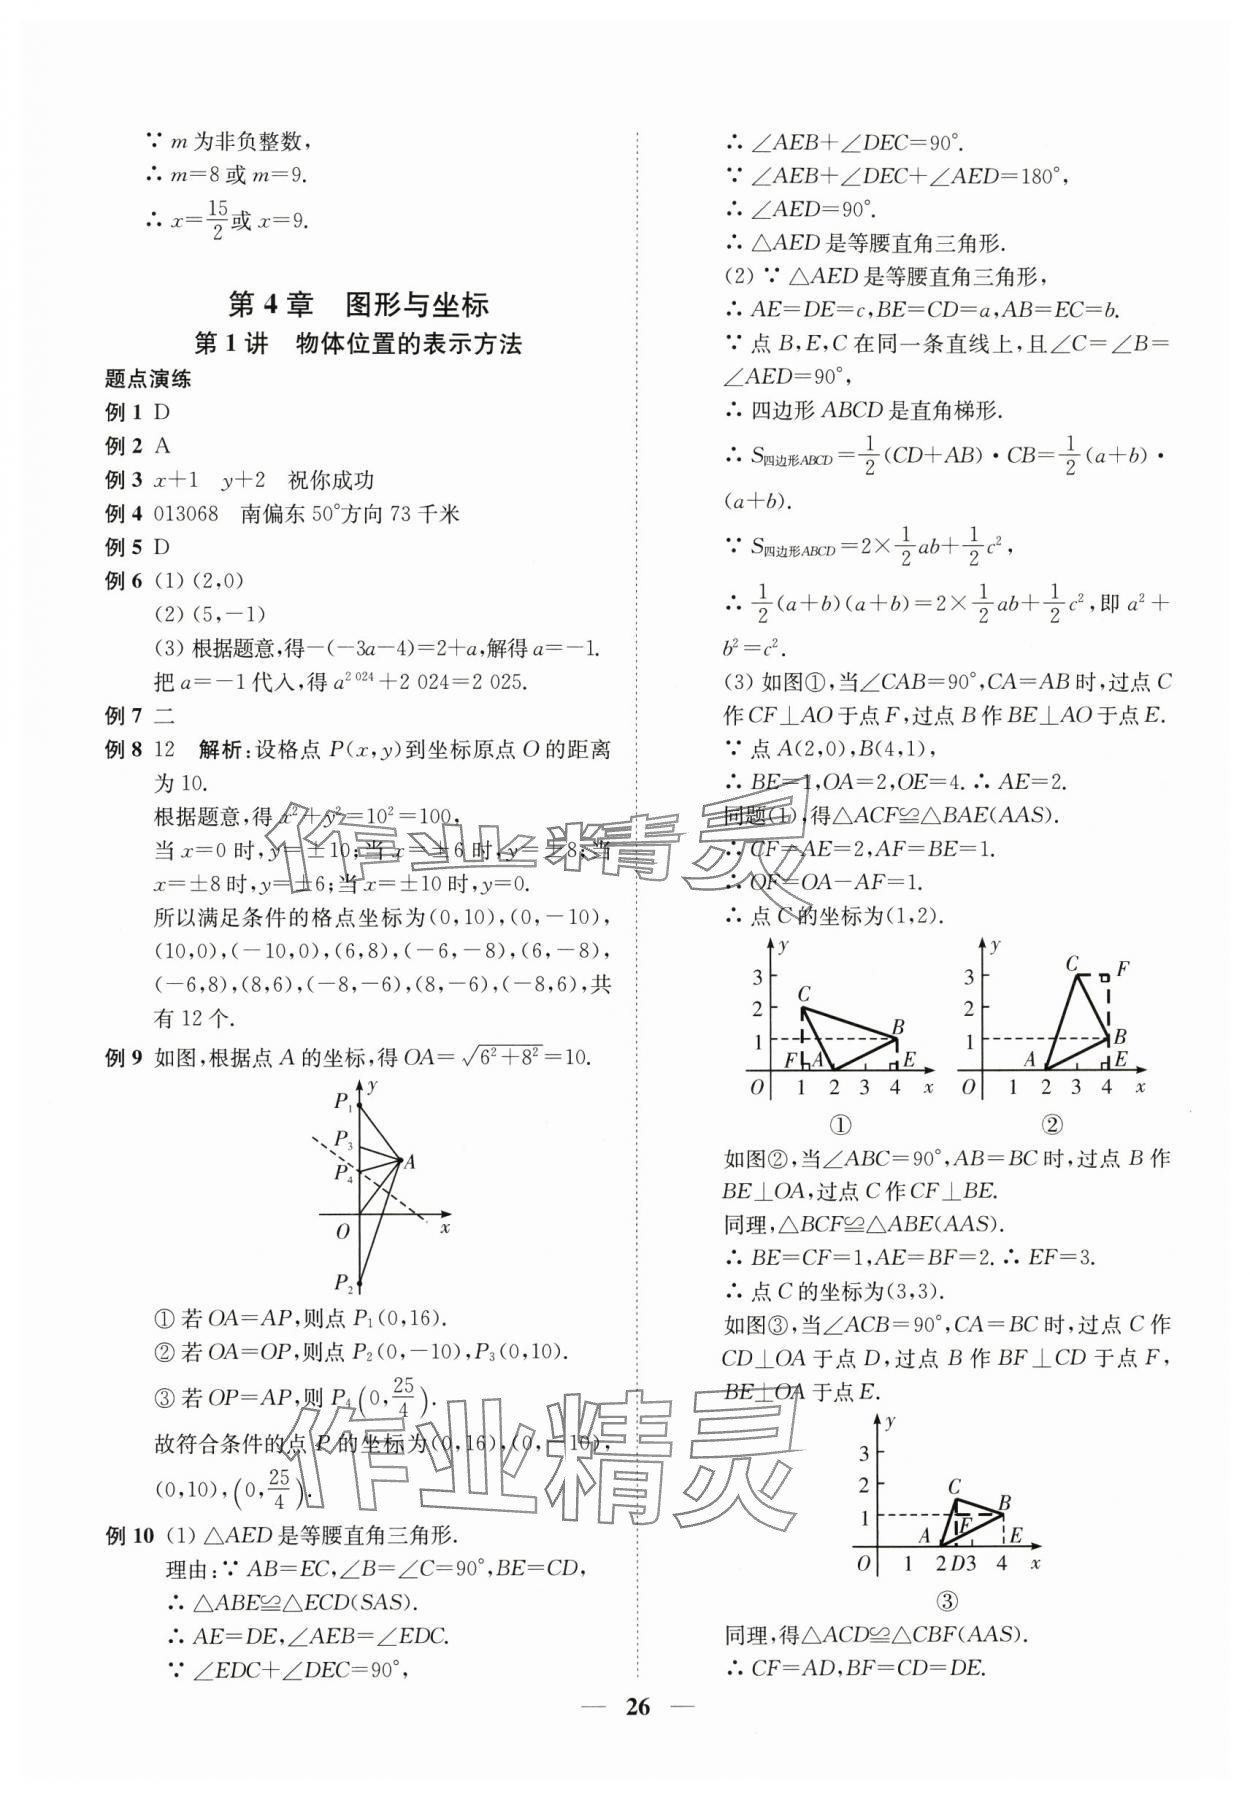 ∵ m为非负整数，
∴ m=8或m=9.
∴ x=15/2或x=9.
第4章 图形与坐标
第1讲 物体位置的表示方法
题点演练
例1 D
例2 A
例3 x+1 y+2 祝你成功
例4 013068 南偏东50°方向73千米
例5 D
例6 (1) (2,0)
(2) (5,-1)
(3) 根据题意,得-(-3a-4)=2+a,解得a=-1.
把a=-1代入,得a^{2 024}+2 024=2 025.
例7 二
例8 12 解析:设格点P(x,y)到坐标原点O的距离
为10.
根据题意,得x²+y²=10²=100,
当x=0时,y=±10;当x=±6时,y=±8;当
x=±8时,y=±6;当x=±10时,y=0.
所以满足条件的格点坐标为(0,10),(0,-10),
(10,0),(-10,0),(6,8),(-6,-8),(6,-8),
(-6,8),(8,6),(-8,-6),(8,-6),(-8,6),共
有12个.
例9 如图,根据点A的坐标,得OA=√(6²+8²)=10.
y
P₁
P₃
A
P₄
O x
P₂
① 若OA=AP,则点P₁(0,16).
② 若OA=OP,则点P₂(0,-10),P₃(0,10).
③ 若OP=AP,则P₄(0,25/4).
故符合条件的点P的坐标为(0,16),(0,-10),
(0,10),(0,25/4).
例10 (1) △AED是等腰直角三角形.
理由:∵ AB=EC,∠B=∠C=90°,BE=CD,
∴ △ABE≌△ECD(SAS).
∴ AE=DE,∠AEB=∠EDC.
∵ ∠EDC+∠DEC=90°,
∴ ∠AEB+∠DEC=90°.
∵ ∠AEB+∠DEC+∠AED=180°,
∴ ∠AED=90°.
∴ △AED是等腰直角三角形.
(2) ∵ △AED是等腰直角三角形,
∴ AE=DE=c,BE=CD=a,AB=EC=b.
∵ 点B,E,C在同一条直线上,且∠C=∠B=
∠AED=90°,
∴ 四边形ABCD是直角梯形.
∴ S四边形ABCD=1/2(CD+AB)·CB=1/2(a+b)·
(a+b).
∵ S四边形ABCD=2×1/2ab+1/2c²,
∴ 1/2(a+b)(a+b)=2×1/2ab+1/2c²,即a²+
b²=c².
(3) 如图①,当∠CAB=90°,CA=AB时,过点C
作CF⊥AO于点F,过点B作BE⊥AO于点E.
∵ 点A(2,0),B(4,1),
∴ BE=1,OA=2,OE=4.∴ AE=2.
同题(1),得△ACF≌△BAE(AAS).
∴ CF=AE=2,AF=BE=1.
∴ OF=OA-AF=1.
∴ 点C的坐标为(1,2).
y
3
2 C
1 B
F A E
O 1 2 3 4 x
①
y
3 C F
2
1 B
A E
O 1 2 3 4 x
②
如图②,当∠ABC=90°,AB=BC时,过点B作
BE⊥OA,过点C作CF⊥BE.
同理,△BCF≌△ABE(AAS).
∴ BE=CF=1,AE=BF=2.∴ EF=3.
∴ 点C的坐标为(3,3).
如图③,当∠ACB=90°,CA=BC时,过点C作
CD⊥OA于点D,过点B作BF⊥CD于点F,
BE⊥OA于点E.
y
3
2 C
1 B
A F E
O 1 2D3 4 x
③
同理,得△ACD≌△CBF(AAS).
∴ CF=AD,BF=CD=DE.
— 26 —
作业精灵
作业精灵